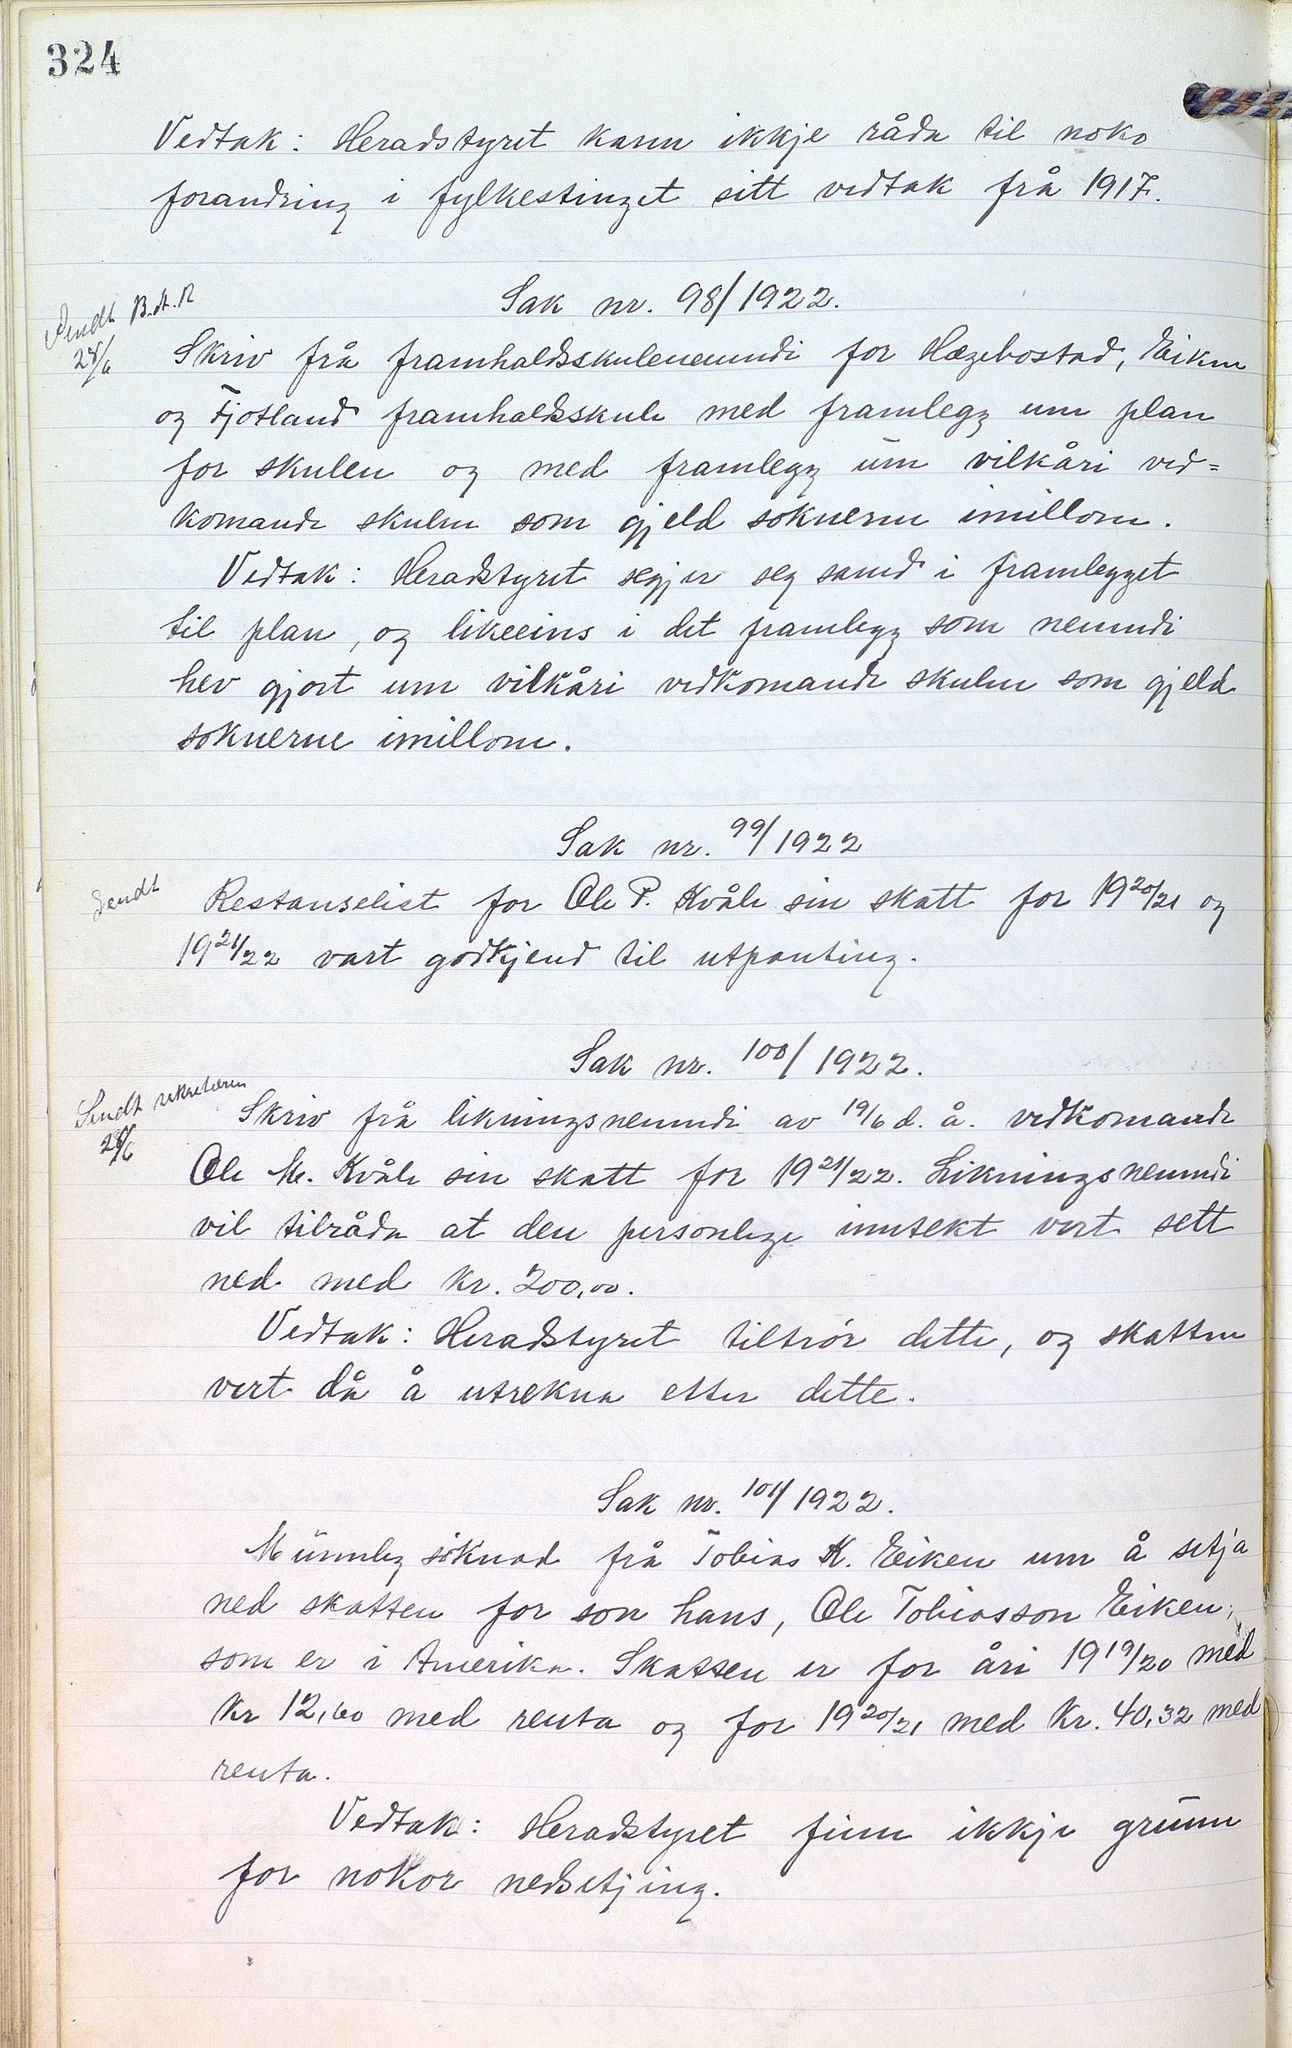 324
Vedtak: Heradstyret kann ikkje råda til noko
forandring i fylkestinget sitt vedtak frå 1917.
Sak nr. 98/1922.
Sendt
28/6
Skriv frå framhaldsskulenemndi for Hægebostad, Eiken
og Fjotland framhaldsskule med framlegg um plan
for skulen og med framlegg um vilkåri ved=
komande skulen som gjeld soknerne imillom.
Vedtak: Heradstyret segjer seg samd i framlegget
til plan, og likeeins i det framlegg som nemndi
hev gjort um vilkåri vedkomande skulen som gjeld
soknerne imillom.
Sak nr. 99/1922
Sendt
Restanselist for Ole P. Kvåle sin skatt for 1920/21 og
1921/22 vart godkjend til utpanting.
Sak nr. 100/1922.
Sendt sekretæren
28/6
Skriv frå likningsnemndi av 19/6 d. å. vedkomande
Ole M. Kvåle sin skatt for 1921/22. Likningsnemndi
vil tilråda at den personlege inntekt vert sett
ned med kr. 200,00.
Vedtak: Heradstyret tiltrør dette, og skatten
vert då å utrekna etter dette.
Sak nr. 101/1922.
Munnleg søknad frå Tobias K. Eiken um å setja
ned skatten for son hans, Ole Tobiasson Eiken,
som er i Amerika. Skatten er for åri 1919/20 med
kr 12,60 med renta og for 1920/21 med kr. 40,32 med
renta.
Vedtak: Heradstyret finn ikkje grunn
for nokor nedsetjing.